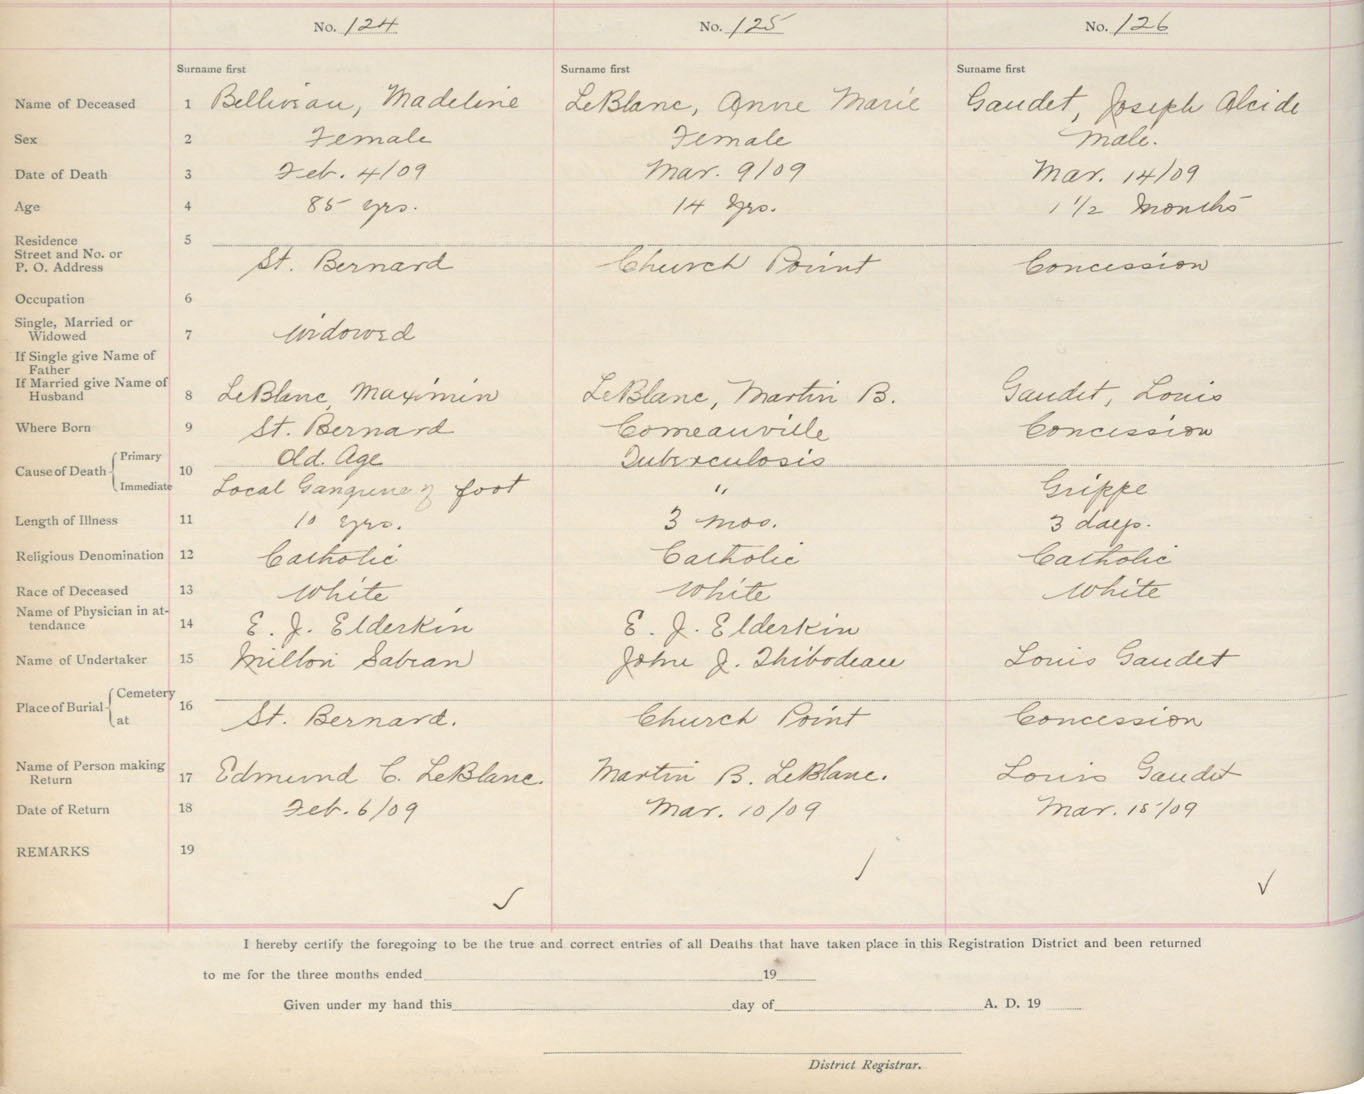 No. 124 No. 125 No. 126
Surname first Surname first Surname first
Name of Deceased 1 Belliveau, Madeline LeBlanc, Anne Marie Gaudet, Joseph Alcide
Sex 2 Female Female Male.
Date of Death 3 Feb. 4/09 Mar. 9/09 Mar. 14/09
Age 4 85 yrs. 14 yrs. 1 1/2 Months
Residence 5
Street and No. or
P. O. Address St. Bernard Church Point Concession
Occupation 6
Single, Married or
Widowed 7 Widowed
If Single give Name of
Father
If Married give Name of
Husband 8 LeBlanc, Maximin LeBlanc, Martin B. Gaudet, Louis
Where Born 9 St. Bernard Comeauville Concession
Cause of Death Primary 10 Old Age Tuberculosis
Immediate Local Gangrene of foot " Grippe
Length of Illness 11 10 yrs. 3 mos. 3 days.
Religious Denomination 12 Catholic Catholic Catholic
Race of Deceased 13 White White White
Name of Physician in at-
tendance 14 E. J. Elderkin E. J. Elderkin
Name of Undertaker 15 John J. Thibodeau Louis Gaudet
Place of Burial Cemetery 16
at St. Bernard. Church Point Concession
Name of Person making
Return 17 Edmund C. LeBlanc. Martin B. LeBlanc. Louis Gaudet
Date of Return 18 Feb. 6/09 Mar. 10/09 Mar. 15/09
REMARKS 19
I hereby certify the foregoing to be the true and correct entries of all Deaths that have taken place in this Registration District and been returned
to me for the three months ended 19
Given under my hand this day of A. D. 19
District Registrar.